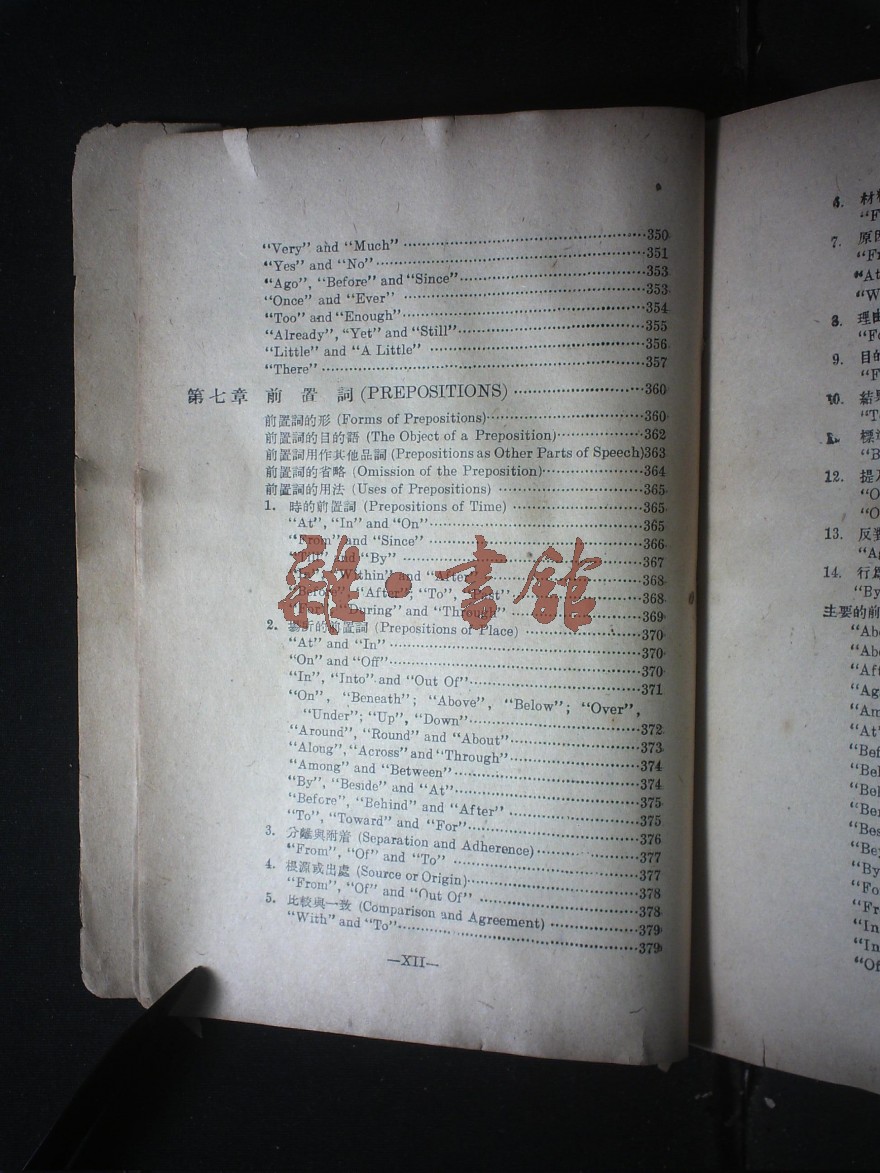 "Very" and "Much" 350
"Yes" and "No" 351
"Ago", "Before" and "Since" 353
"Once" and "Ever" 353
"Too" and "Enough" 354
"Already", "Yet" and "Still" 355
"Little" and "A Little" 356
"There" 357
第七章 前置詞 (PREPOSITIONS) 360
前置詞的形 (Forms of Prepositions) 360
前置詞的目的語 (The Object of a Preposition) 362
前置詞用作其他品詞 (Prepositions as Other Parts of Speech) 363
前置詞的省略 (Omission of the Preposition) 364
前置詞的用法 (Uses of Prepositions) 365
1. 時的前置詞 (Prepositions of Time) 365
"At", "In" and "On" 365
"From" and "Since" 366
"Till" and "By" 367
"In", "Within" and "After" 368
"Before", "After", "To", "Past" 368
"For", "During" and "Through" 369
2. 的前置詞 (Prepositions of Place) 370
"At" and "In" 370
"On" and "Off" 370
"In", "Into" and "Out Of" 371
"On", "Beneath"; "Above", "Below"; "Over",
"Under"; "Up", "Down" 372
"Around", "Round" and "About" 373
"Along", "Across" and "Through" 374
"Among" and "Between" 374
"By", "Beside" and "At" 375
"Before", "Behind" and "After" 375
"To", "Toward" and "For" 376
3. 分離與附着 (Separation and Adherence) 377
"From", "Of" and "To" 377
4. 根源或出處 (Source or Origin) 378
"From", "Of" and "Out Of" 378
5. 比較與一致 (Comparison and Agreement) 379
"With" and "To" 379
—XII—
雜·書館
6. 材料
"F
7. 原因
"Fr
"At
"W
8. 理由
"Fo
9. 目的
"F
10. 結果
"T
標準
"B
12. 提及
"O
"O
13. 反對
"Ag
14. 行爲
"By
主要的前
"Abo
"Abo
"Aft
"Ag
"Am
"At"
"Bef
"Beh
"Bel
"Ben
"Bes
"Bey
"By
"Fo
"Fr
"In
"In
"Of